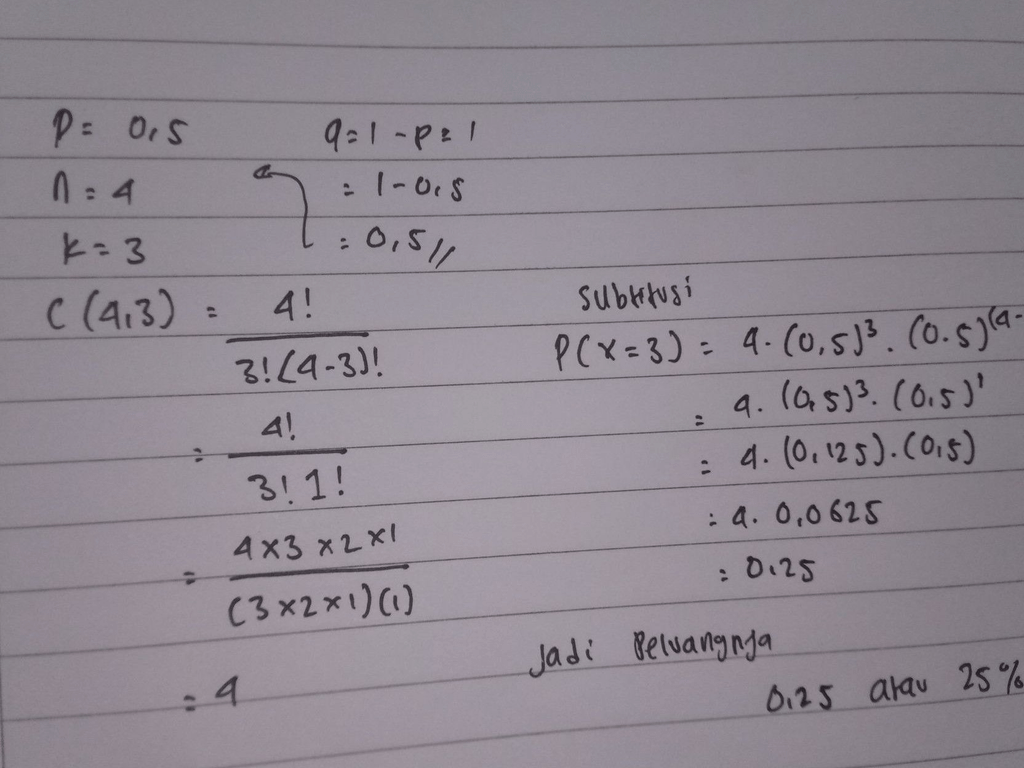 P = 0,5
n = 4
k = 3
q = 1 - p = 1
= 1 - 0,5
= 0,5 //
C (4,3) = 4!
3! (4-3)!
= 4!
3! 1!
= 4 x 3 x 2 x 1
(3 x 2 x 1) (1)
= 4
Subtitusi
P(x=3) = 4. (0,5)³. (0.5)⁽⁴⁻
= 4. (0,5)³. (0,5)¹
= 4. (0,125). (0,5)
= 4. 0,0625
= 0,25
Jadi Peluangnya
0,25 atau 25%